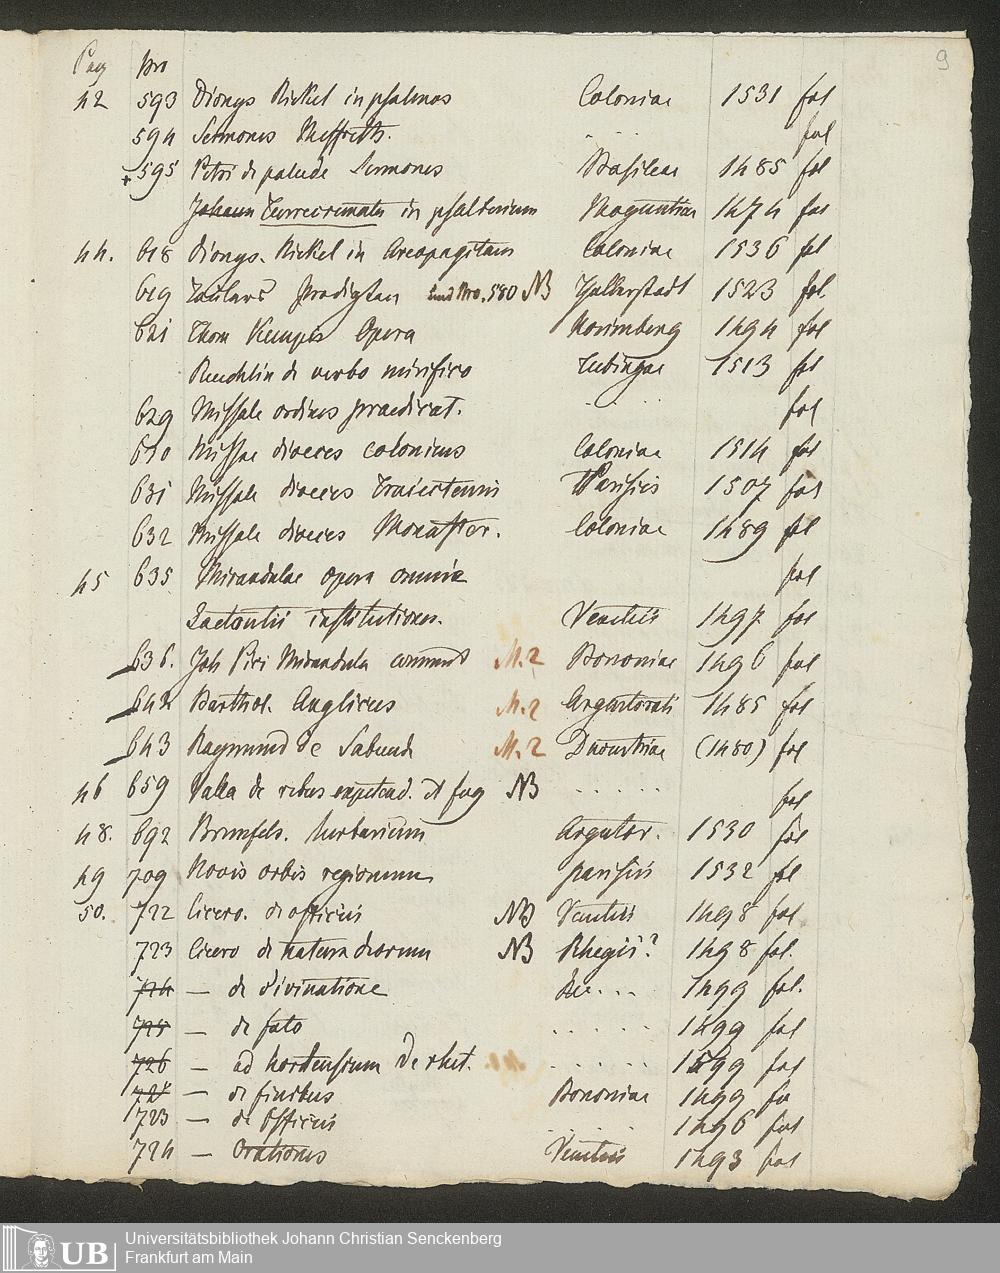 9
Pag Nro
42 593 Dionys Rickel in psalmos Coloniae 1531 fol
594 Sermones Meffreth. . . . fol
+ 595 Petri de palude Sermones Basileae 1485 fol
Johann Turrecremata in psalterium Moguntiae 1474 fol
44. 618 Dionys. Rickel in Areopagitam Coloniae 1536 fol
619 Taulers Predigten sind Nro. 580 NB Halberstadt 1523 fol.
621 Thom Kempis Opera Norimberg 1494 fol
Reuchlin de verbo mirifico Tubingae 1513 fol
629 Missale ordinis praedicat. . . . . fol
630 Missae dioeces coloniens Coloniae 1514 fol
631 Missale dioeces Traiectensis Parisiis 1507 fol
632 Missale dioeces Monaster. Coloniae 1489 fol
45 635 Mirandulae opera omnia fol
Lactantii institutiones. Venetiis 1497 fol
636. Joh Pici Mirandula comment M. 2 Bononiae 1496 fol
642 Barthol. Anglicus M. 2 Argentorati 1485 fol
643 Raymund de Sabunde M. 2 Dauentriae (1480) fol
46 659 Valla de rebus expetend. et fug NB . . . . . . fol
48. 692 Brunfels. herbarium Argentor. 1530 fol
49 709 Novis orbis regionum parisiis 1532 fol
50. 722 Cicero. de officiis NB Venetiis 1498 fol
723 Cicero de natura deorum NB Rhegii? 1498 fol.
724 — de divinatione . . . 1499 fol.
725 — de fato . . . . . 1499 fol
726 — ad hortensium de rhet. . . . . . 1599 fol
727 — de finibus Bononiae 1499 fo
723 — de Officiis . . . . 1496 fol
724 — Orationes Venetiis 1493 fol
UB Universitätsbibliothek Johann Christian Senckenberg
Frankfurt am Main